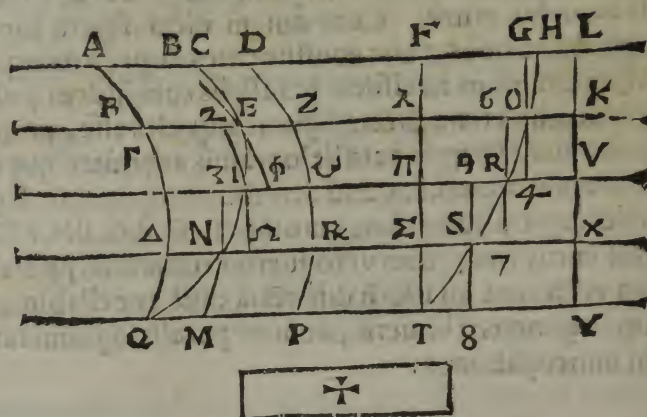 A B C D F G H L
B 2 E Z λ 6 O K
Γ 3 I Φ π 9 R V
Δ N Ω Σ S 4 X
Q M P T 8 7 Y